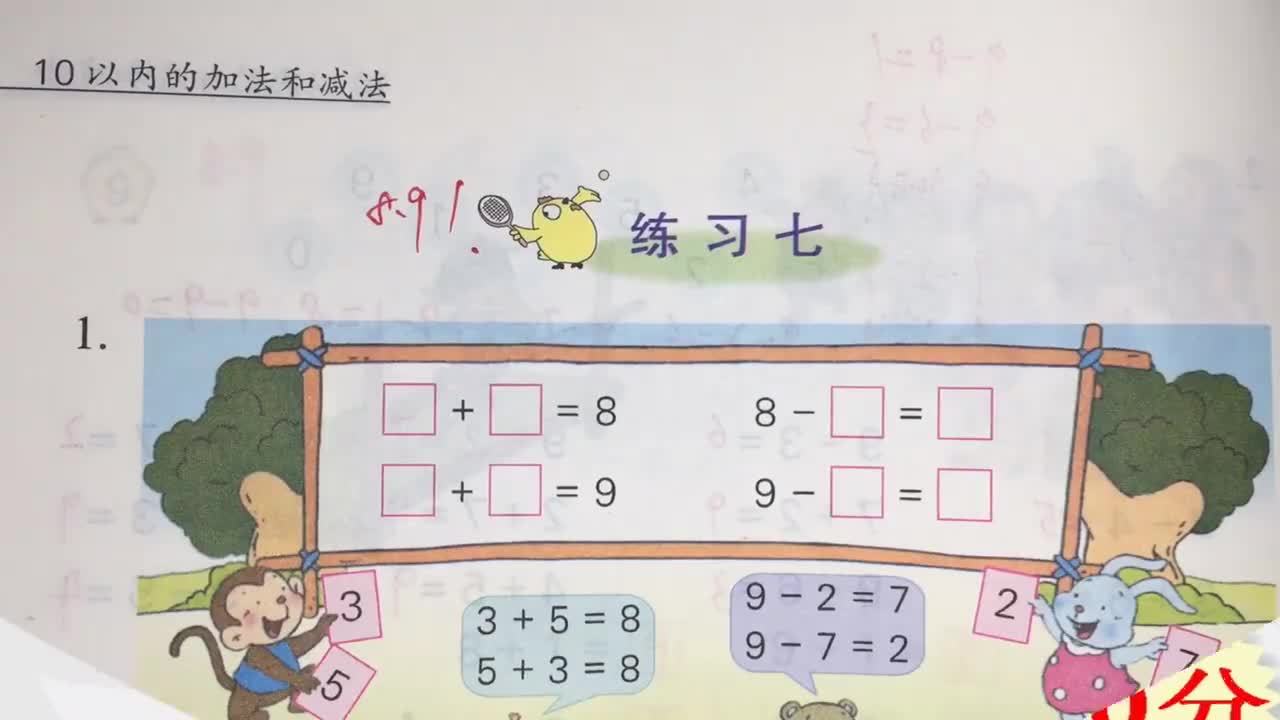 10以内的加法和减法
8.9!
练习七
1.
□ + □ = 8 8 - □ = □
□ + □ = 9 9 - □ = □
3
5
3 + 5 = 8
5 + 3 = 8
9 - 2 = 7
9 - 7 = 2
2
7
分